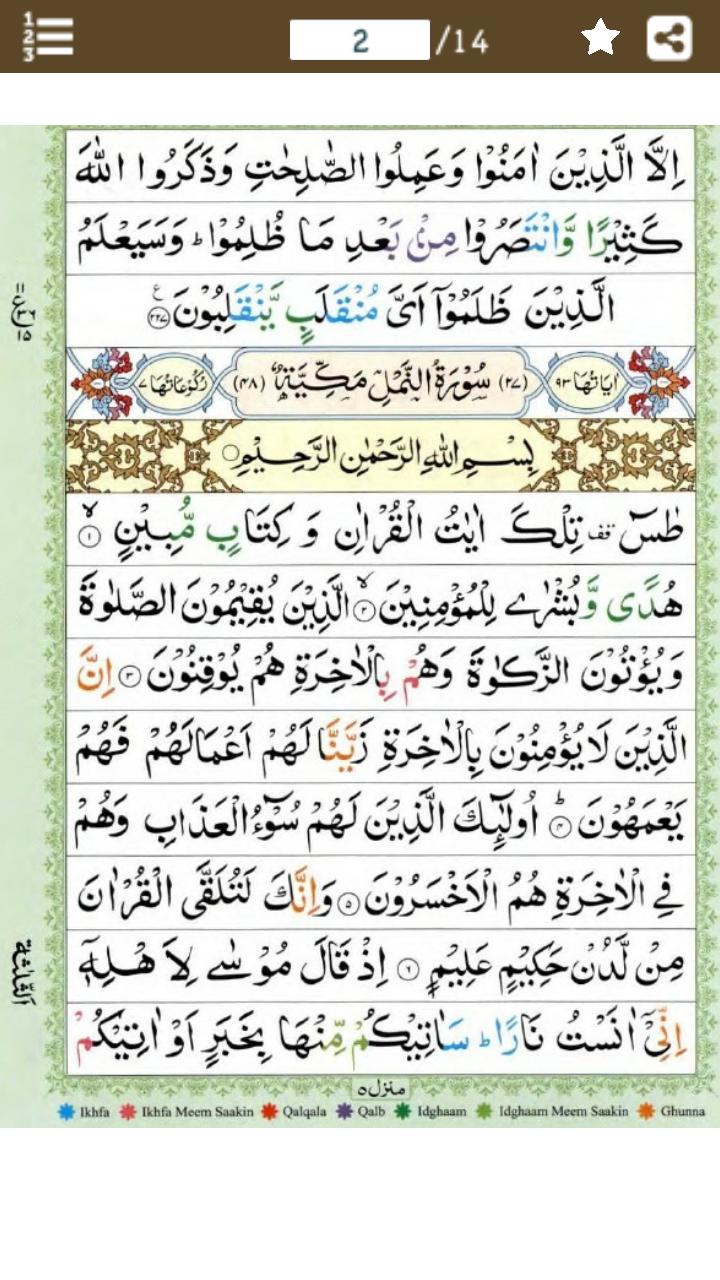 1
2
3
2 /14
اِلَّا الَّذِيْنَ اٰمَنُوْا وَعَمِلُوا الصّٰلِحٰتِ وَذَكَرُوا اللّٰهَ
كَثِيْرًا وَّانْتَصَرُوْا مِنْۢ بَعْدِ مَا ظُلِمُوْا ؕ وَسَيَعْلَمُ
الَّذِيْنَ ظَلَمُوْۤا اَیَّ مُنْقَلَبٍ يَّنْقَلِبُوْنَ ﴿۲۲۷﴾ ع
اٰيَاتُهَا ۹۳ (۲۷) سُوْرَةُ النَّمْلِ مَكِّيَّةٌ (۴۸) رُكُوْعَاتُهَا ۷
بِسْمِ اللّٰهِ الرَّحْمٰنِ الرَّحِيْمِ
طٰسٓ قف تِلْكَ اٰيٰتُ الْقُرْاٰنِ وَ كِتَابٍ مُّبِيْنٍ ۙ﴿۱﴾
هُدًى وَّبُشْرٰے لِلْمُؤْمِنِيْنَ ۙ﴿۲﴾ الَّذِيْنَ يُقِيْمُوْنَ الصَّلٰوةَ
وَيُؤْتُوْنَ الزَّكٰوةَ وَهُمْ بِالْاٰخِرَةِ هُمْ يُوْقِنُوْنَ ﴿۳﴾ اِنَّ
الَّذِيْنَ لَا يُؤْمِنُوْنَ بِالْاٰخِرَةِ زَيَّنَّا لَهُمْ اَعْمَالَهُمْ فَهُمْ
يَعْمَهُوْنَ ؕ﴿۴﴾ اُولٰٓئِكَ الَّذِيْنَ لَهُمْ سُوْٓءُ الْعَذَابِ وَهُمْ
فِے الْاٰخِرَةِ هُمُ الْاَخْسَرُوْنَ ﴿۵﴾ وَاِنَّكَ لَتُلَقَّى الْقُرْاٰنَ
مِنْ لَّدُنْ حَكِيْمٍ عَلِيْمٍ ﴿۶﴾ اِذْ قَالَ مُوْسٰے لِاَهْلِهٖۤ
اِنِّیْۤ اٰنَسْتُ نَارًا ؕ سَاٰتِيْكُمْ مِّنْهَا بِخَبَرٍ اَوْ اٰتِيْكُمْ
اَلثَّلٰثَة
منزل ۵
Ikhfa Ikhfa Meem Saakin Qalqala Qalb Idghaam Idghaam Meem Saakin Ghunna